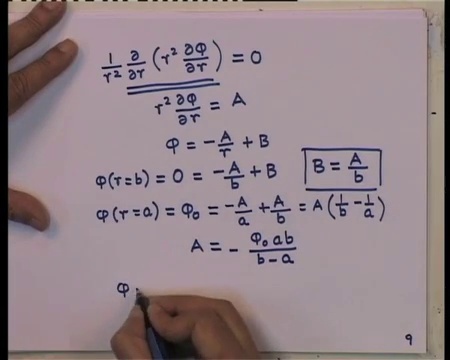 1/r² ∂/∂r (r² ∂φ/∂r) = 0
r² ∂φ/∂r = A
φ = -A/r + B
φ(r=b) = 0 = -A/b + B    B = A/b
φ(r=a) = φ₀ = -A/a + A/b = A(1/b - 1/a)
A = - φ₀ab/b-a
φ
9